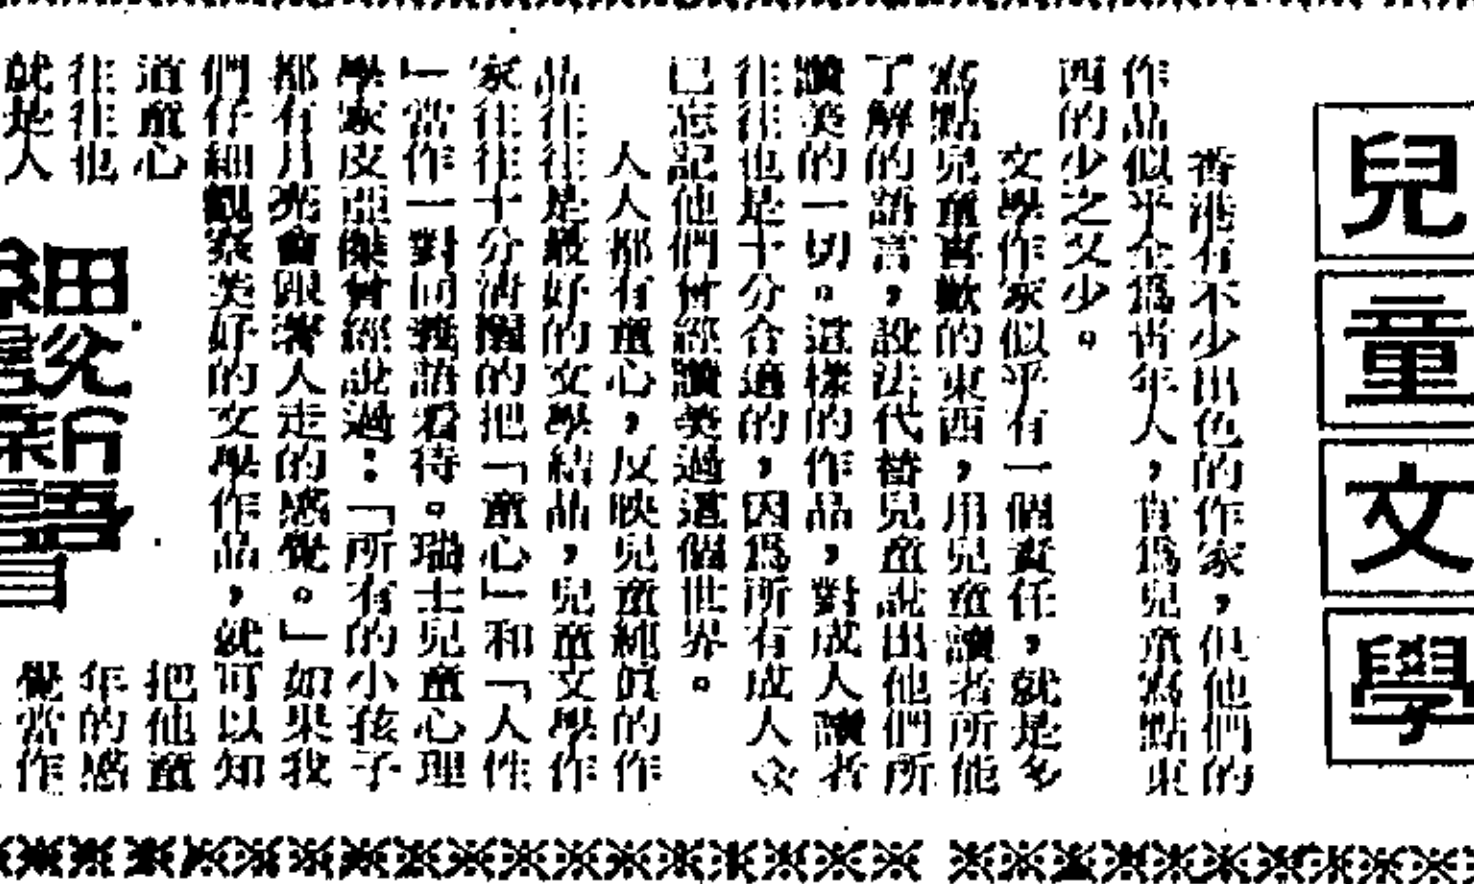 兒童文學
香港有不少出色的作家，但他們的
作品似乎全爲青年人，肯爲兒童寫點東
西的少之又少。
文學作家似乎有一個責任，就是多
寫點兒童喜歡的東西，用兒童讀者所能
了解的語言，設法代替兒童說出他們所
讚美的一切。這樣的作品，對成人讀者
往往也是十分合適的，因爲所有成人
已忘記他們曾經讚美過這個世界。
人人都有童心，反映兒童純眞的作
品往往是最好的文學結晶，兒童文學作
家往往十分清醒的把「童心」和「人性
」當作一對同義語看待。瑞士兒童心理
學家皮亞傑曾經說過：「所有的小孩子
都有月亮會跟著人走的感覺。」如果我
們仔細觀察美好的文學作品，就可以知
道童心
往往也
就是人
細說新語
把他童
年的感
覺當作